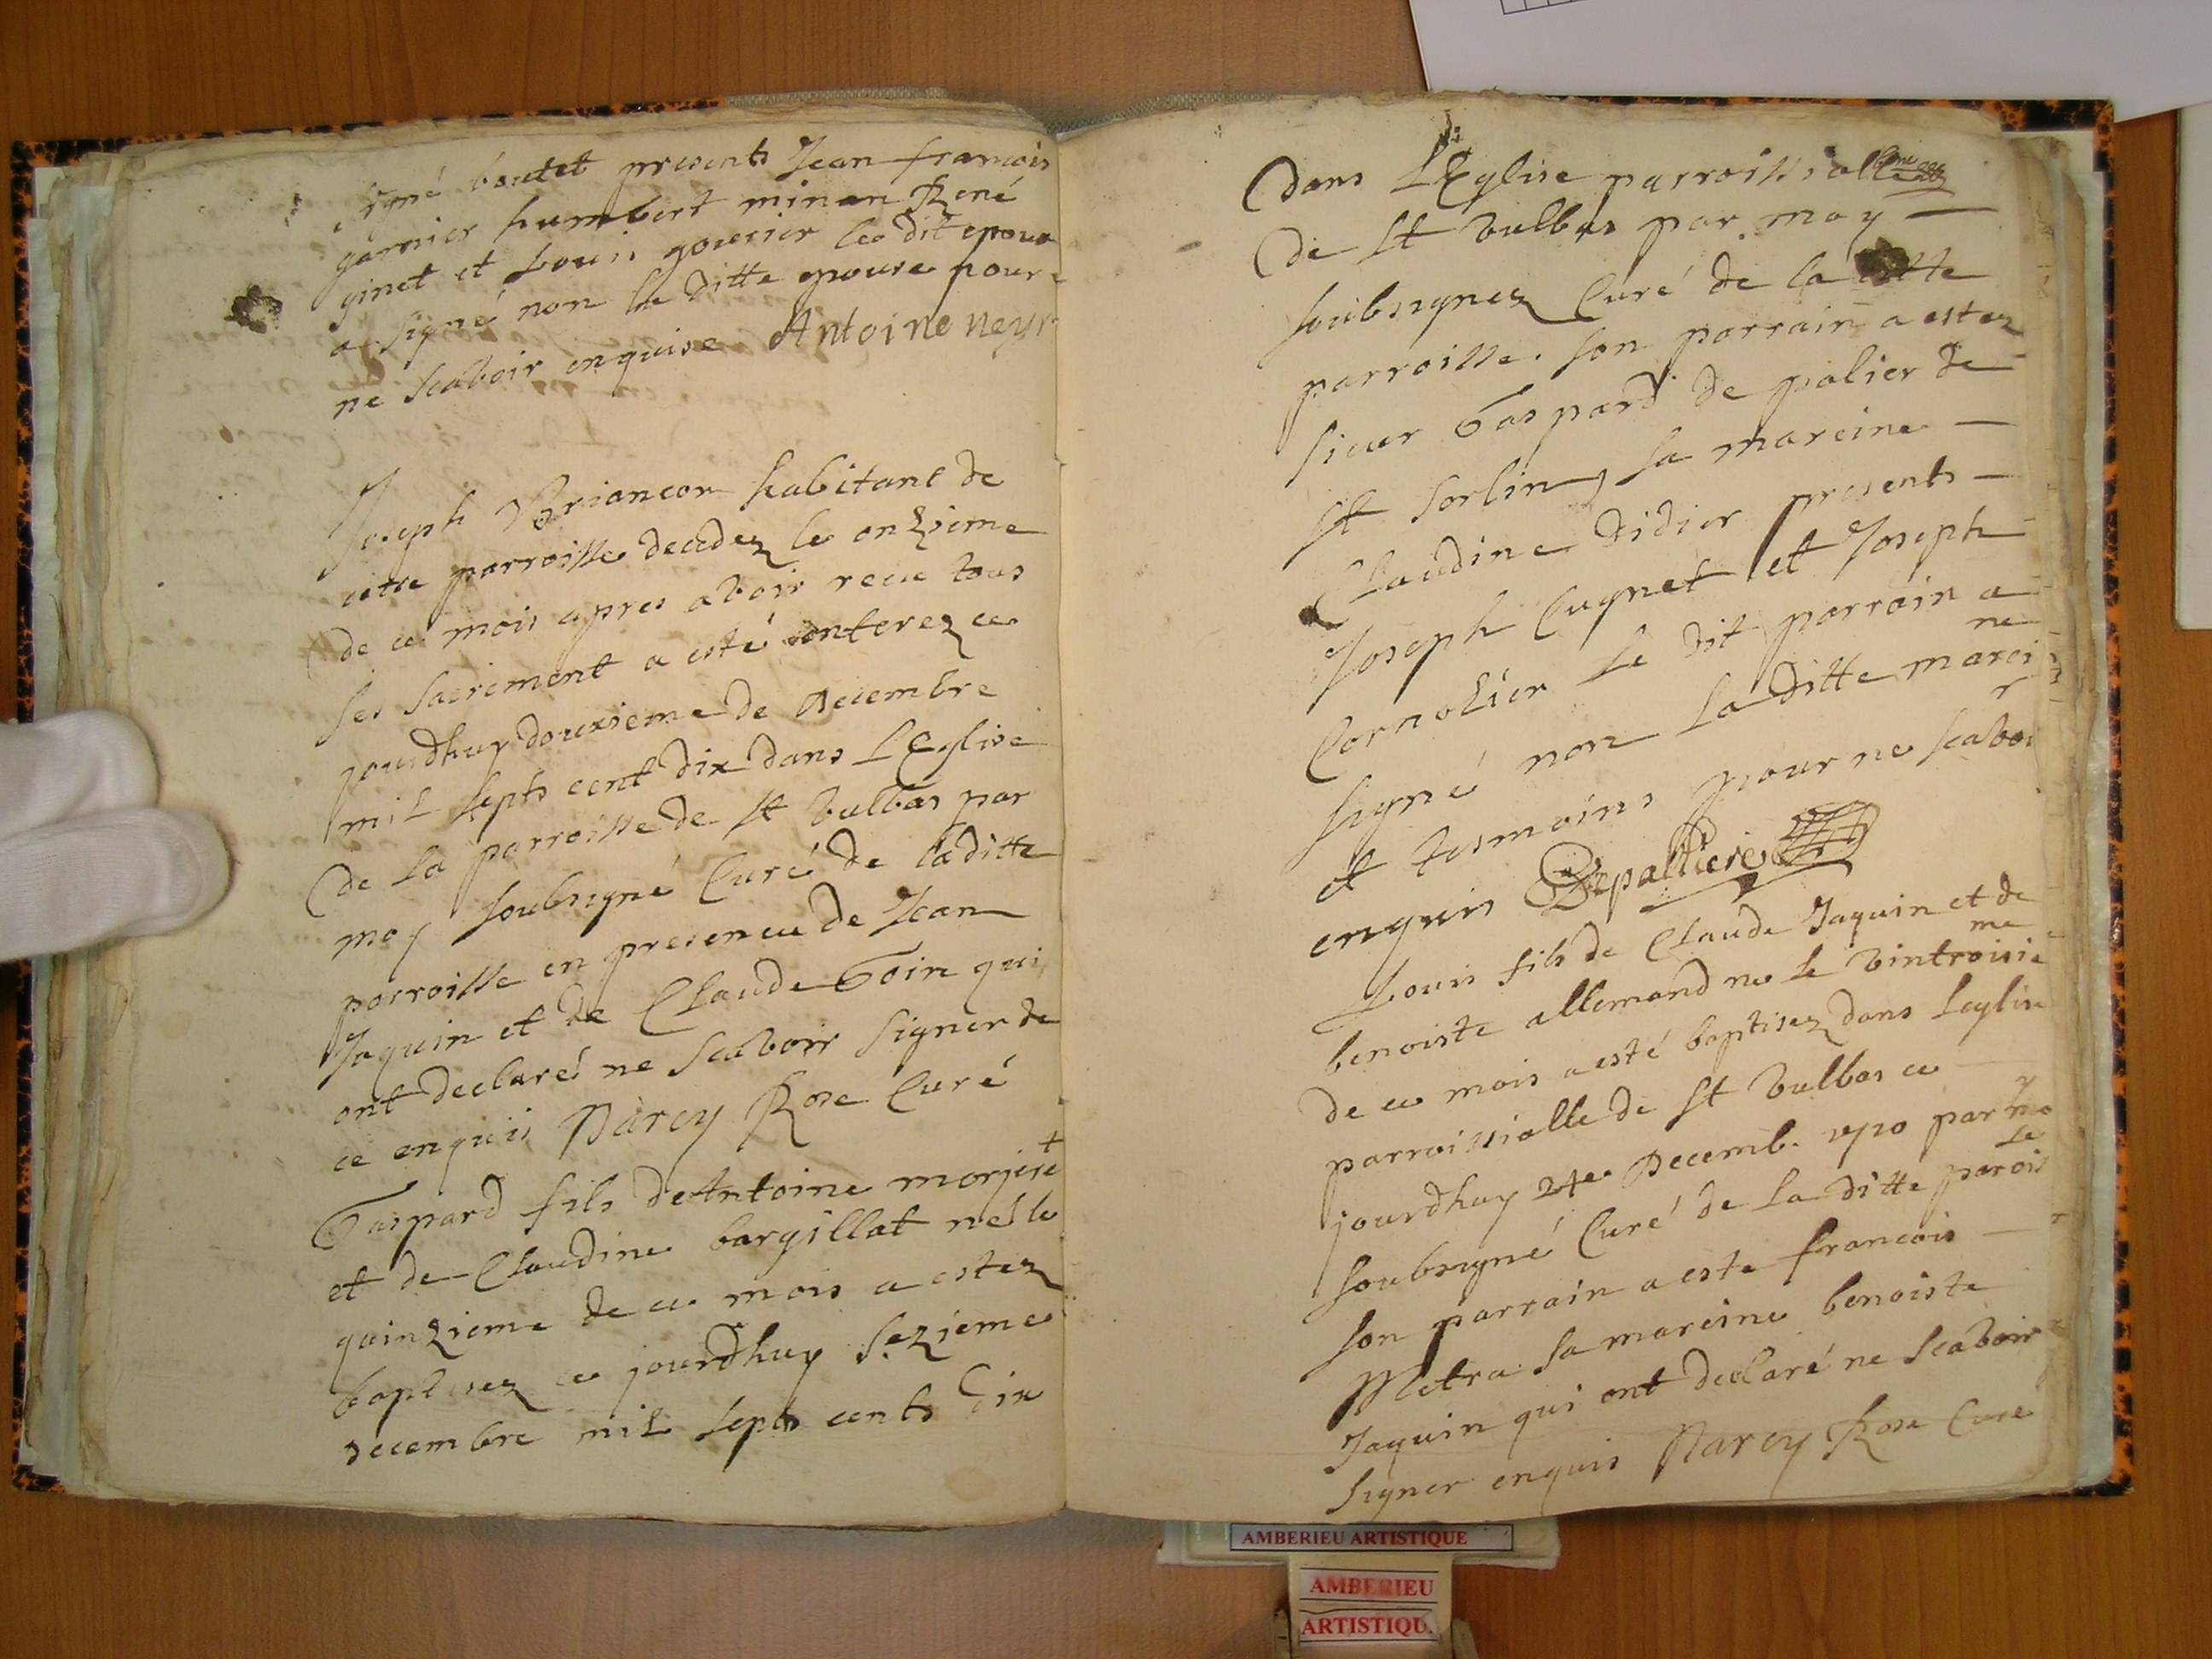 signé boutet presents Jean francois
garnier humbert minan René
ginet et Louis gouvier le dit epoux
a signé non la ditte epouse pour
ne scavoir enquise Antoine neyr
Joseph Briancon habitant de
cette parroisse decedez le onzieme
de ce mois apres avoir receu tous
ses sacrement a esté enterez ce
jourdhuy douxieme de decembre
mil septs cent dix dans L'Eglise
de la parroisse de St Vulbas par
moy soubsigné Curé de laditte
parroisse en presence de Jean
Jaquin et de Claude Goin qui
ont declaré ne scavoir signer de
ce enquis Darcy Rose Curé
Gaspard fils de Antoine
et de Claudine bargillat né le
quinzieme de ce mois a estez
baptisez ce jourdhuy sezieme
decembre mil septs cents dix
Dans L'Eglise parroissialle
de St Vulbas par moy
soubsignez Curé de la ditte
parroisse. son parrain a estez
sieur Gaspard de palier de
St Sorlin, sa mareine
Claudine Didier presents
Joseph Cugnet et Joseph
Cornolier le dit parrain a
signé non la ditte mareine
et tesmoins pour ne scavoir
enquis Depalliere
Louis fils de Claude Jaquin et de
benoiste allemand né le vintroisieme
de ce mois a esté baptisez dans leglise
parroissialle de St Vulbas ce
jourdhuy 24e Decemb. 1710 par moy
soubsigné Curé de la ditte paroisse
son parrain a este francois
Metra sa mareine benoiste
Jaquin qui ont declaré ne scavoir
signer enquis Darcy Rose Curé
AMBERIEU ARTISTIQUE
AMBERIEU
ARTISTIQU